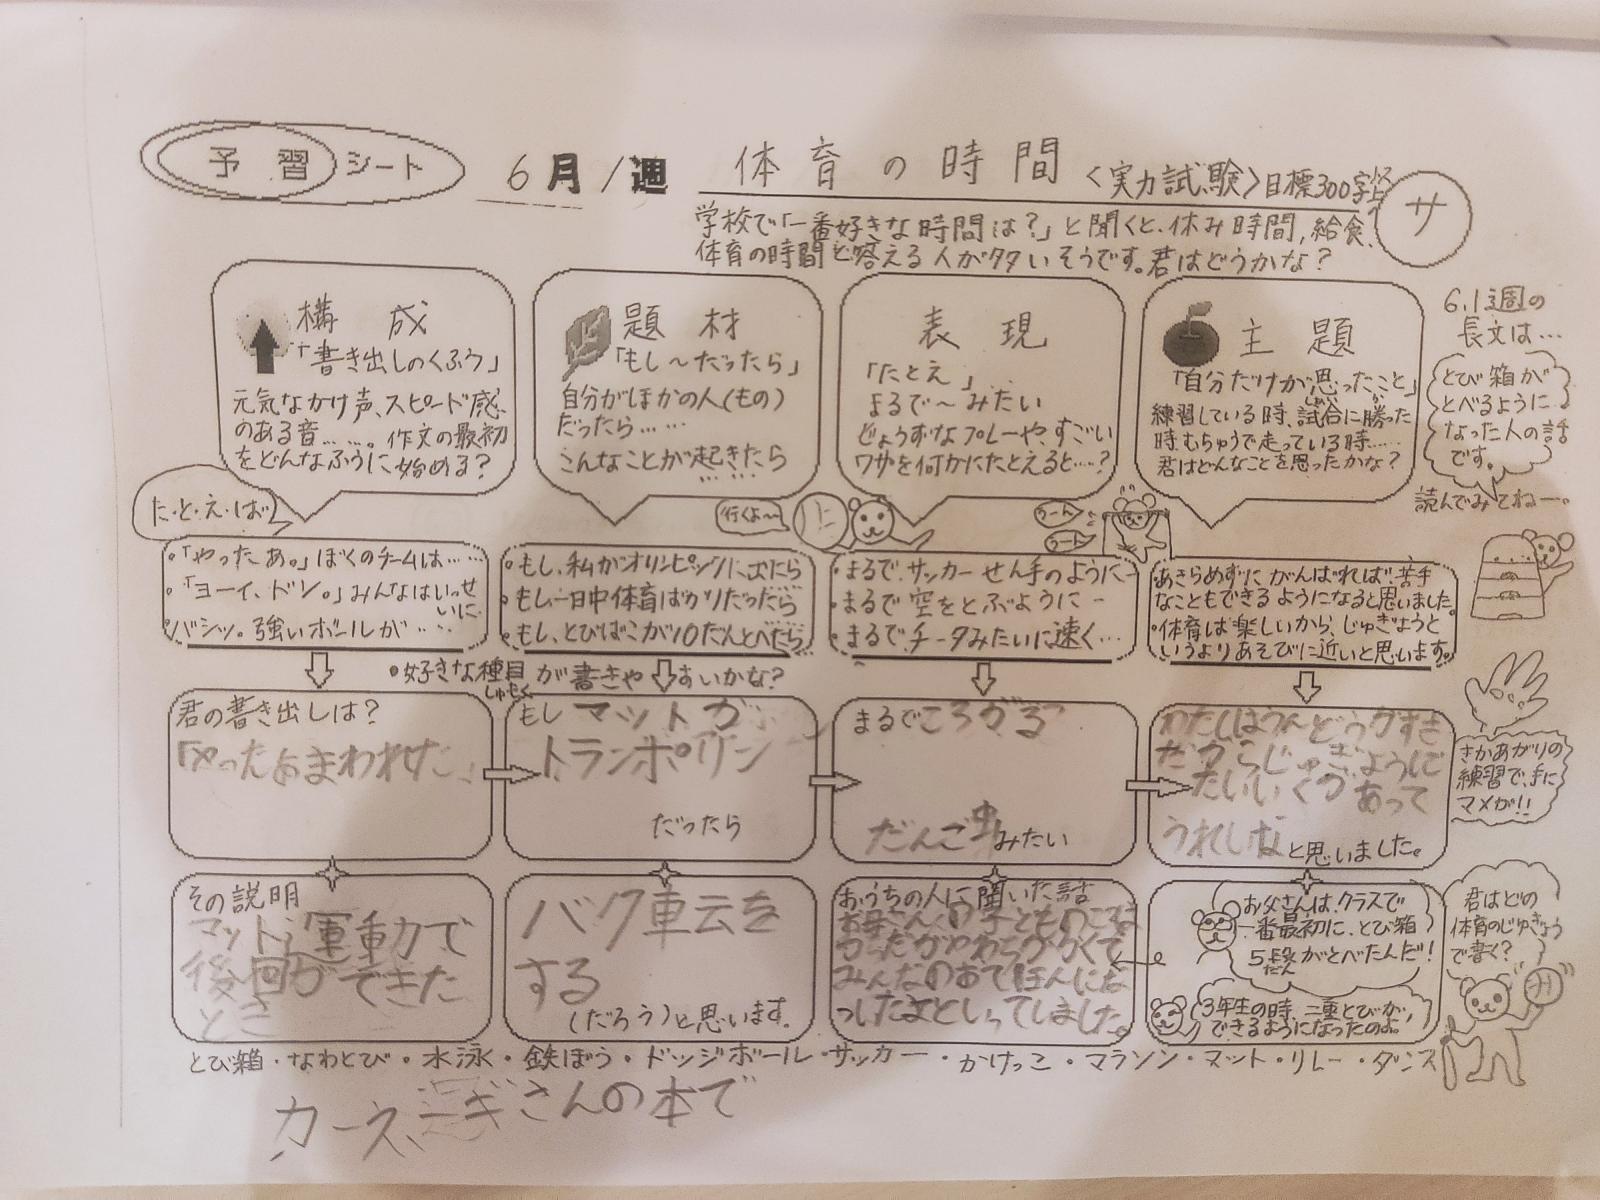 予習シート
6月1週
体育の時間
<実力試験>目標300字
サ
学校で「一番好きな時間は？」と聞くと、休み時間、給食、
体育の時間と答える人が多いそうです。君はどうかな？
構成
「書き出しのくふう」
元気なかけ声、スピード感
のある音……。作文の最初
をどんなふうに始める？
題材
「もし～だったら」
自分がほかの人（もの）
だったら……
こんなことが起きたら
……
表現
「たとえ」
まるで～みたい
じょうずなプレーや、すごい
ワザを何かにたとえると…？
主題
「自分だけが思ったこと」
練習している時、試合に勝った
時むちゅうで走っている時……
君はどんなことを思ったかな？
6.1週の
長文は…
とび箱が
とべるように
なった人の話
です。
読んでみてねー。
た・と・え・ば
・「やったあ。」ぼくのチームは……
・「ヨーイ、ドン。」みんなはいっせ
いに…
バシッ。強いボールが……
行くよ～
・もし、私がオリンピックに出たら
・もし一日中体育ばかりだったら
・もし、とびばこが10だんとべたら
うーん
うーん
・まるで、サッカーせん手のように
・まるで空をとぶように
・まるで、チータみたいに速く…
あきらめずにがんばれば、苦手
なこともできるようになると思いました。
・体育は楽しいから、じゅぎょうと
いうよりあそびに近いと思います。
・好きな種目が書きやすいかな？
しゅもく
君の書き出しは？
「やったぁまわれた」
もしマットが
トランポリン
だったら
まるでころがる
だんご虫みたい
わたしはうんどうがすき
だからじゅぎょうに
たいいくがあって
うれしいなと思いました。
さかあがりの
練習で、手に
マメが!!
その説明
マット運動で
後回りができた
とき
バク車云を
する
（だろう）と思います。
おうちの人に聞いた話
お母さんの子どものころは
みんなのおて
ったよといってしました。
お父さんは、クラスで
一番最初に、とび箱
5段がとべたんだ！
だん
3年生の時、二重とびが
できるようになったのよ。
君はどの
体育のじゅぎょう
で書く？
とび箱・なわとび・水泳・鉄ぼう・ドッジボール・サッカー・かけっこ・マラソン・マット・リレー・ダンス
さんの本で